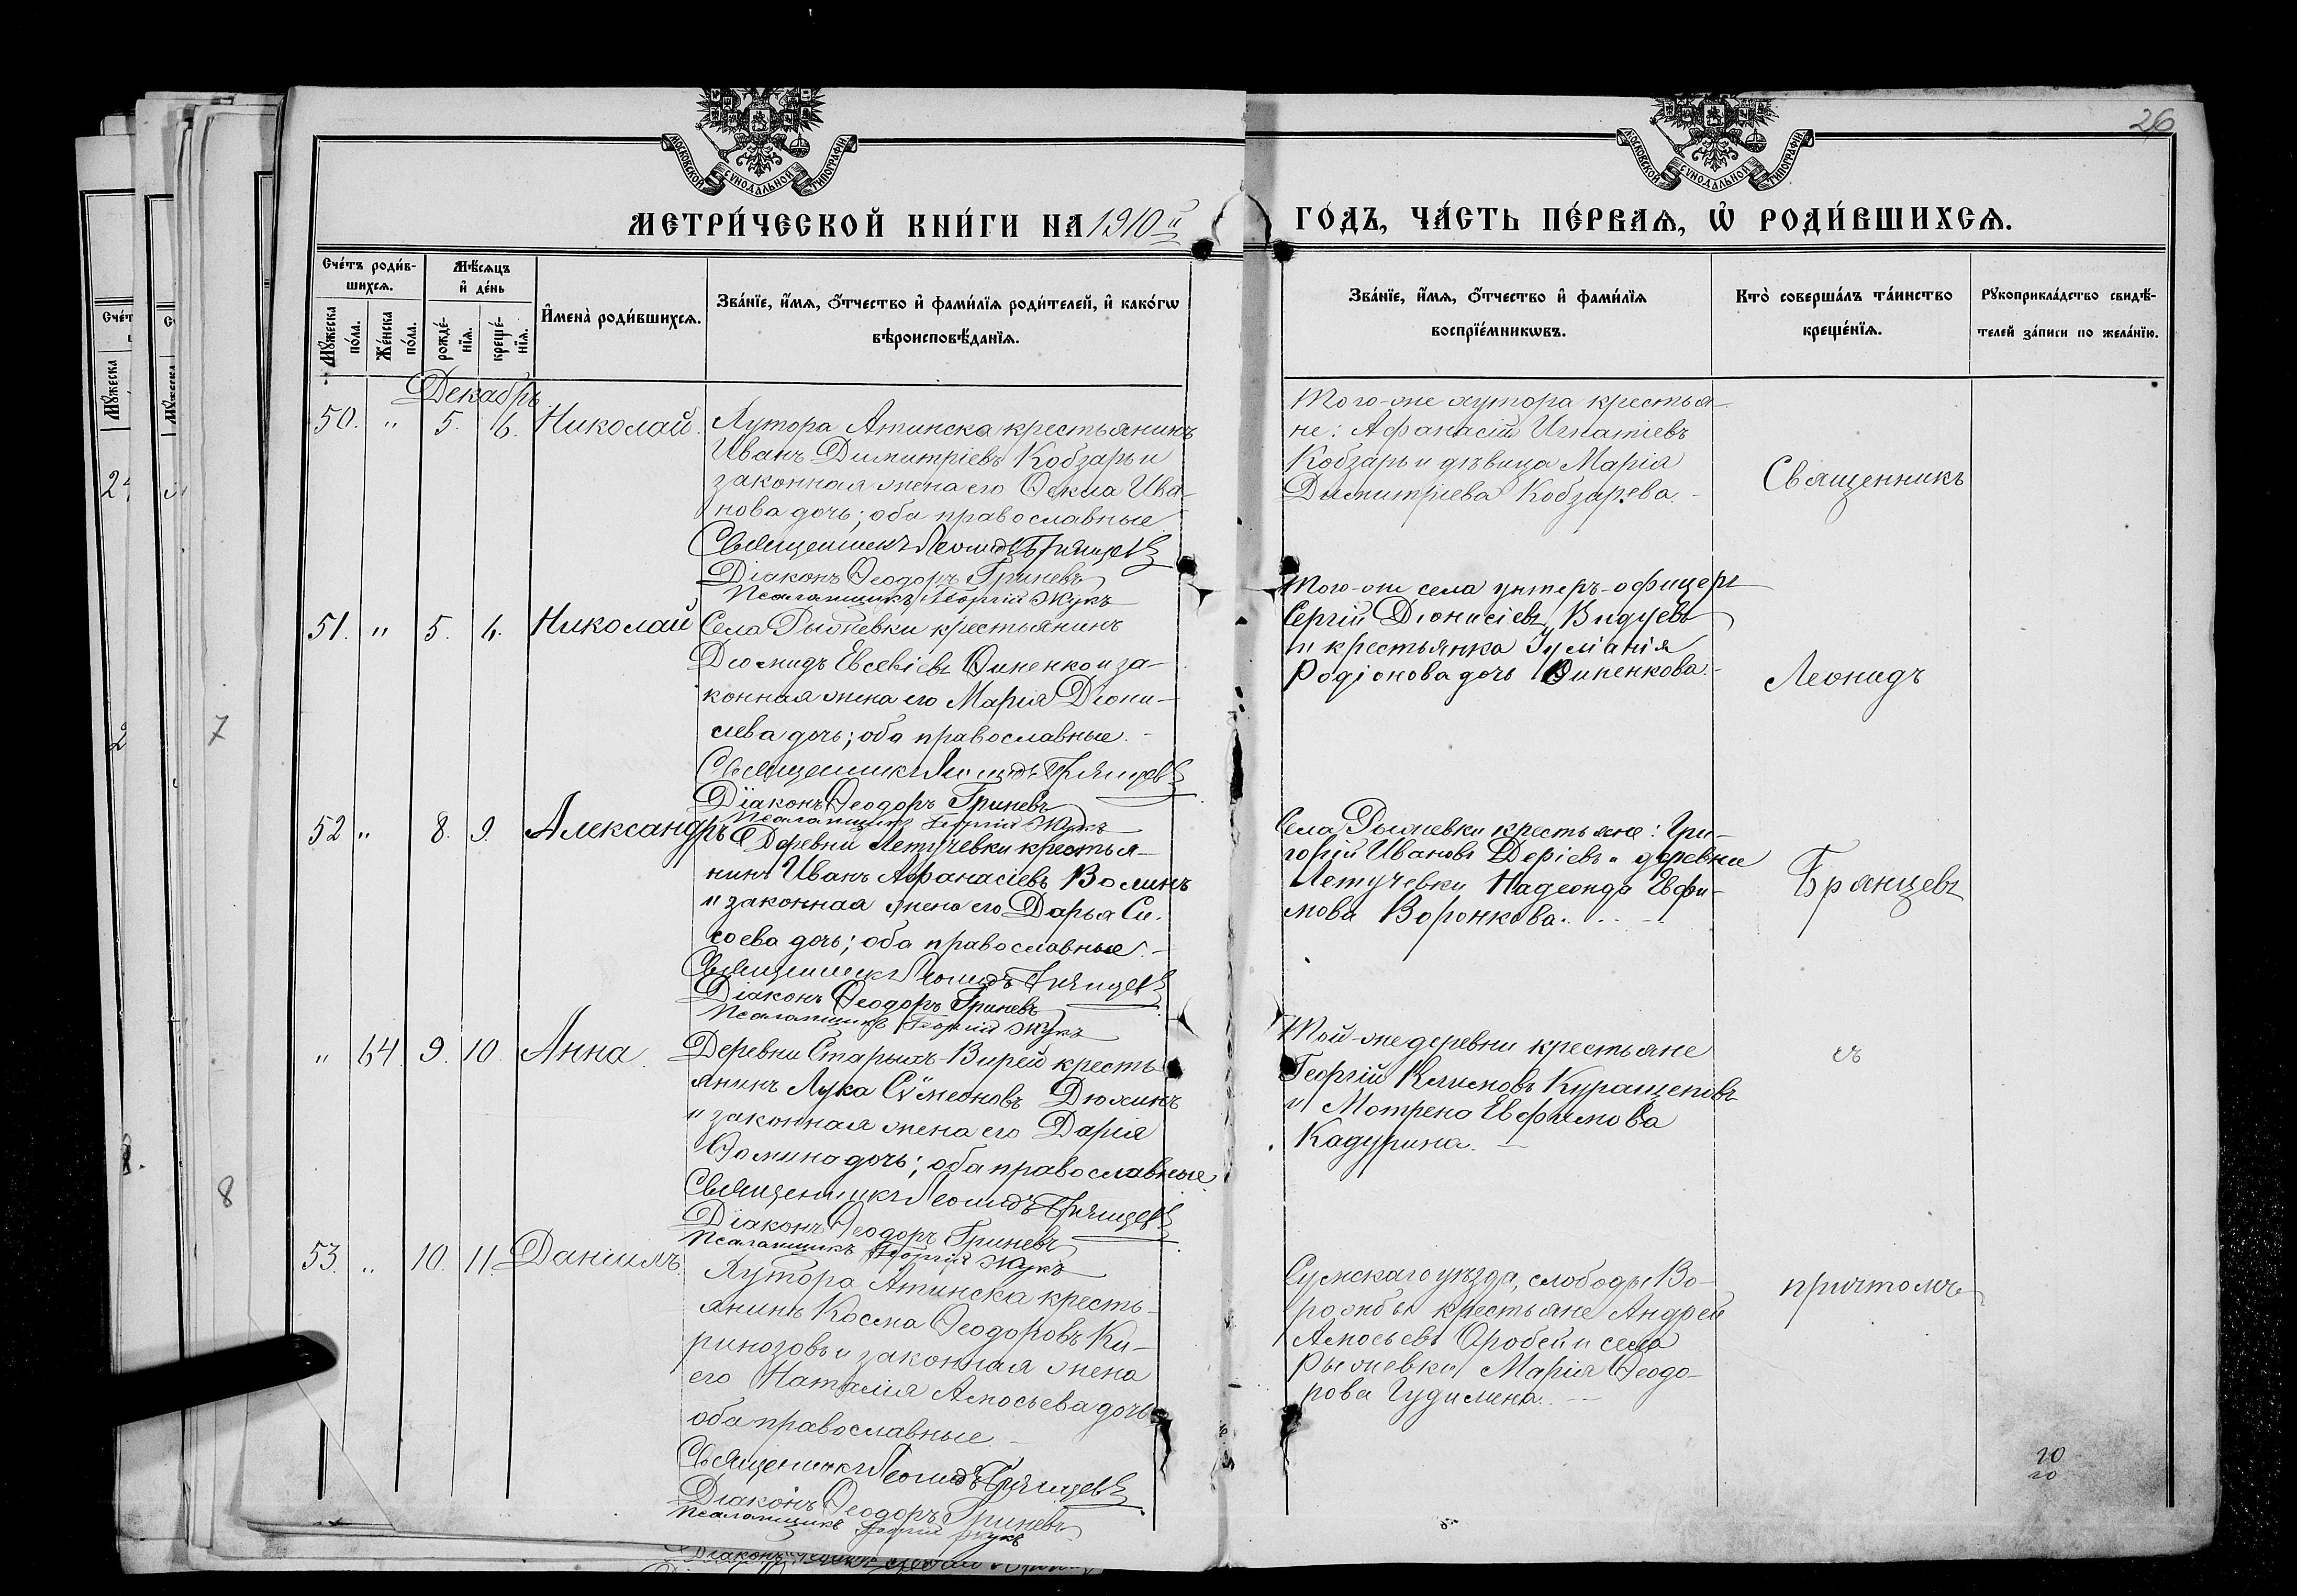 26
МОСКОВСКОЙ СѴНОДАЛЬНОЙ ТИПОГРАФІИ
МОСКОВСКОЙ СѴНОДАЛЬНОЙ ТИПОГРАФІИ
МЕТРИ́ЧЕСКОЙ КНИ́ГИ НА 1910й
ГО́ДЪ, ЧА́СТЬ ПЕ́РВАѦ, Ѡ҆ РОДИ́ВШИХСѦ.
Сче́тъ роди́в-
шихсѧ.
Мꙋ́жеска по́ла.
Же́нска по́ла.
Мѣ́сѧцъ
и҆ де́нь
рожде́-
нїѧ.
креще́-
нїѧ.
И҆мена̀ роди́вшихсѧ.
Зва́нїе, и҆́мѧ, ѻ҆́тчество и҆ фами́лїѧ роди́телей, и҆ како́гѡ
вѣроисповѣ́данїѧ.
Зва́нїе, и҆́мѧ, ѻ҆́тчество и҆ фами́лїѧ
воспрїе́мникѡвъ.
Кто̀ соверша́лъ та́инство
креще́нїѧ.
Рꙋкоприкла́дство свидѣ́-
телей за́писи по жела́нїю.
Декабрь
50. " 5. 6. Николай.
Хутора Атинска крестьянинъ
Иванъ Димитріевъ Кобзарь и
законная жена его Ѳекла Ива-
нова дочь; оба православные
Священникъ Леонидъ Брянцевъ
Діаконъ Ѳеодоръ Гриневъ
Псаломщикъ Георгій Жукъ
Того-же хутора крестья-
не: Афанасій Игнатіевъ
Кобзарь и дѣвица Марія
Димитріева Кобзарева.-
Священникъ
51. " 5. 6. Николай
Села Рыжевки крестьянинъ
Діомидъ Евсевіевъ Ѳиненко и за-
конная жена его Марія Діони-
сіева дочь; оба православные.-
Священникъ Леонидъ Брянцевъ
Діаконъ Ѳеодоръ Гриневъ
Псаломщикъ Георгій Жукъ
Того-же села унтеръ-офицеръ
Сергій Діонисіевъ Видуевъ
и крестьянка Іуліанія
Родіонова дочь Ѳиненкова.-
Леонидъ
52 " 8. 9. Александръ
Деревни Летучевки крестья-
нинъ Иванъ Афанасіевъ Волинъ
и законная жена его Дарья Си-
соева дочь; оба православные.-
Священникъ Леонидъ Брянцевъ
Діаконъ Ѳеодоръ Гриневъ
Псаломщикъ Георгій Жукъ
Села Рыжевки крестьяне: Гри-
горій Ивановъ Деріевъ и деревни
Летучевки Надежда Евфи-
мова Воронкова.
Брянцевъ
" 64 9. 10. Анна.
Деревни Старыхъ-Вирей кресть-
янинъ Лука Сѵмеоновъ Дюжинъ
и законная жена его Дарія
Ѳомина дочь; оба православные
Священникъ Леонидъ Брянцевъ
Діаконъ Ѳеодоръ Гриневъ
Псаломщикъ Георгій Жукъ
Той-же деревни крестьяне
Георгій Климовъ
и Мотрена Евфимова
Кадурина.-
съ
53. " 10. 11. Даніилъ
Хутора Атинска кресть-
янинъ Косма Ѳеодоровъ Ки-
ринозовъ и законная жена
его Наталія Амосьева дочь
оба православные.-
Священникъ Леонидъ Брянцевъ
Діаконъ Ѳеодоръ Гриневъ
Псаломщикъ Георгій Жукъ
Сумскаго уѣзда, слободы Во-
рожбы крестьяне Андрей
Амосьевъ и села
Рыжевки Марія Ѳеодо-
рова Гудилина.-
причтомъ
20
20
7
8